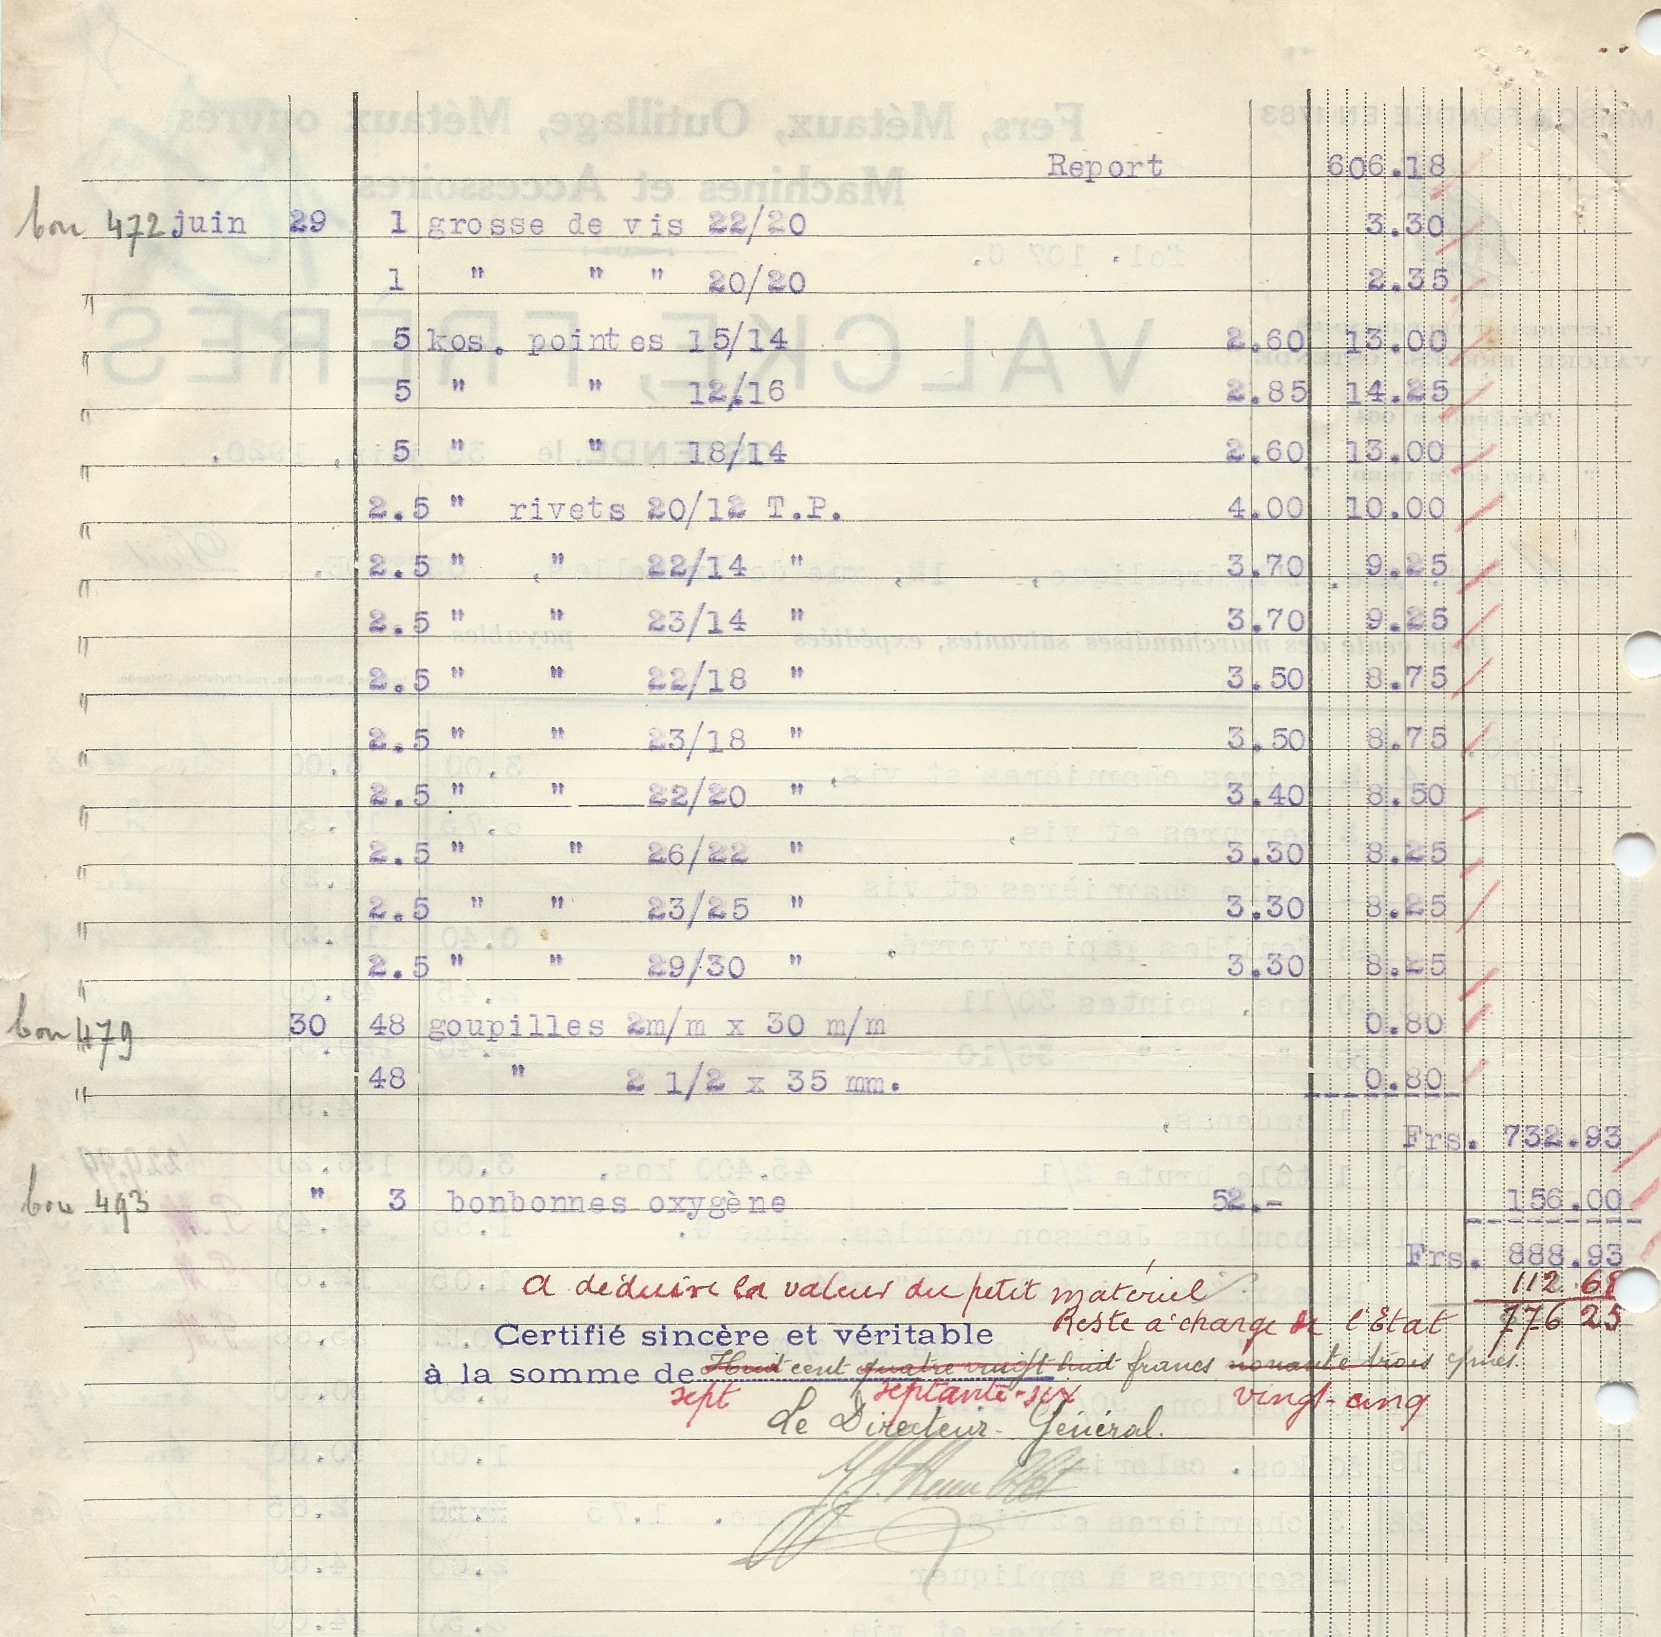 Report 606.18
bon 472 juin 29 1 grosse de vis 22/20 3.30
" 1 " " " 20/20 2.35
" 5 kos. pointes 15/14 2.60 13.00
" 5 " " 12/16 2.85 14.25
" 5 " " 18/14 2.60 13.00
" 2.5 " rivets 20/12 T.P. 4.00 10.00
" 2.5 " " 22/14 " 3.70 9.25
" 2.5 " " 23/14 " 3.70 9.25
" 2.5 " " 22/18 " 3.50 8.75
" 2.5 " " 23/18 " 3.50 8.75
" 2.5 " " 22/20 " 3.40 8.50
" 2.5 " " 26/22 " 3.30 8.25
" 2.5 " " 23/25 " 3.30 8.25
" 2.5 " " 29/30 " 3.30 8.25
bon 479 30 48 goupilles 2m/m x 30 m/m 0.80
" 48 " 2 1/2 x 35 mm. 0.80
Frs. 732.93
bon 493 " 3 bonbonnes oxygène 52.- 156.00
Frs. 888.93
A déduire la valeur du petit matériel 112.68
Reste à charge de l'Etat 776 25
Certifié sincère et véritable
à la somme de Huit cent quatre vingt huit francs nonante trois cmes.
sept septante-six vingt-cinq
Le Directeur Général.